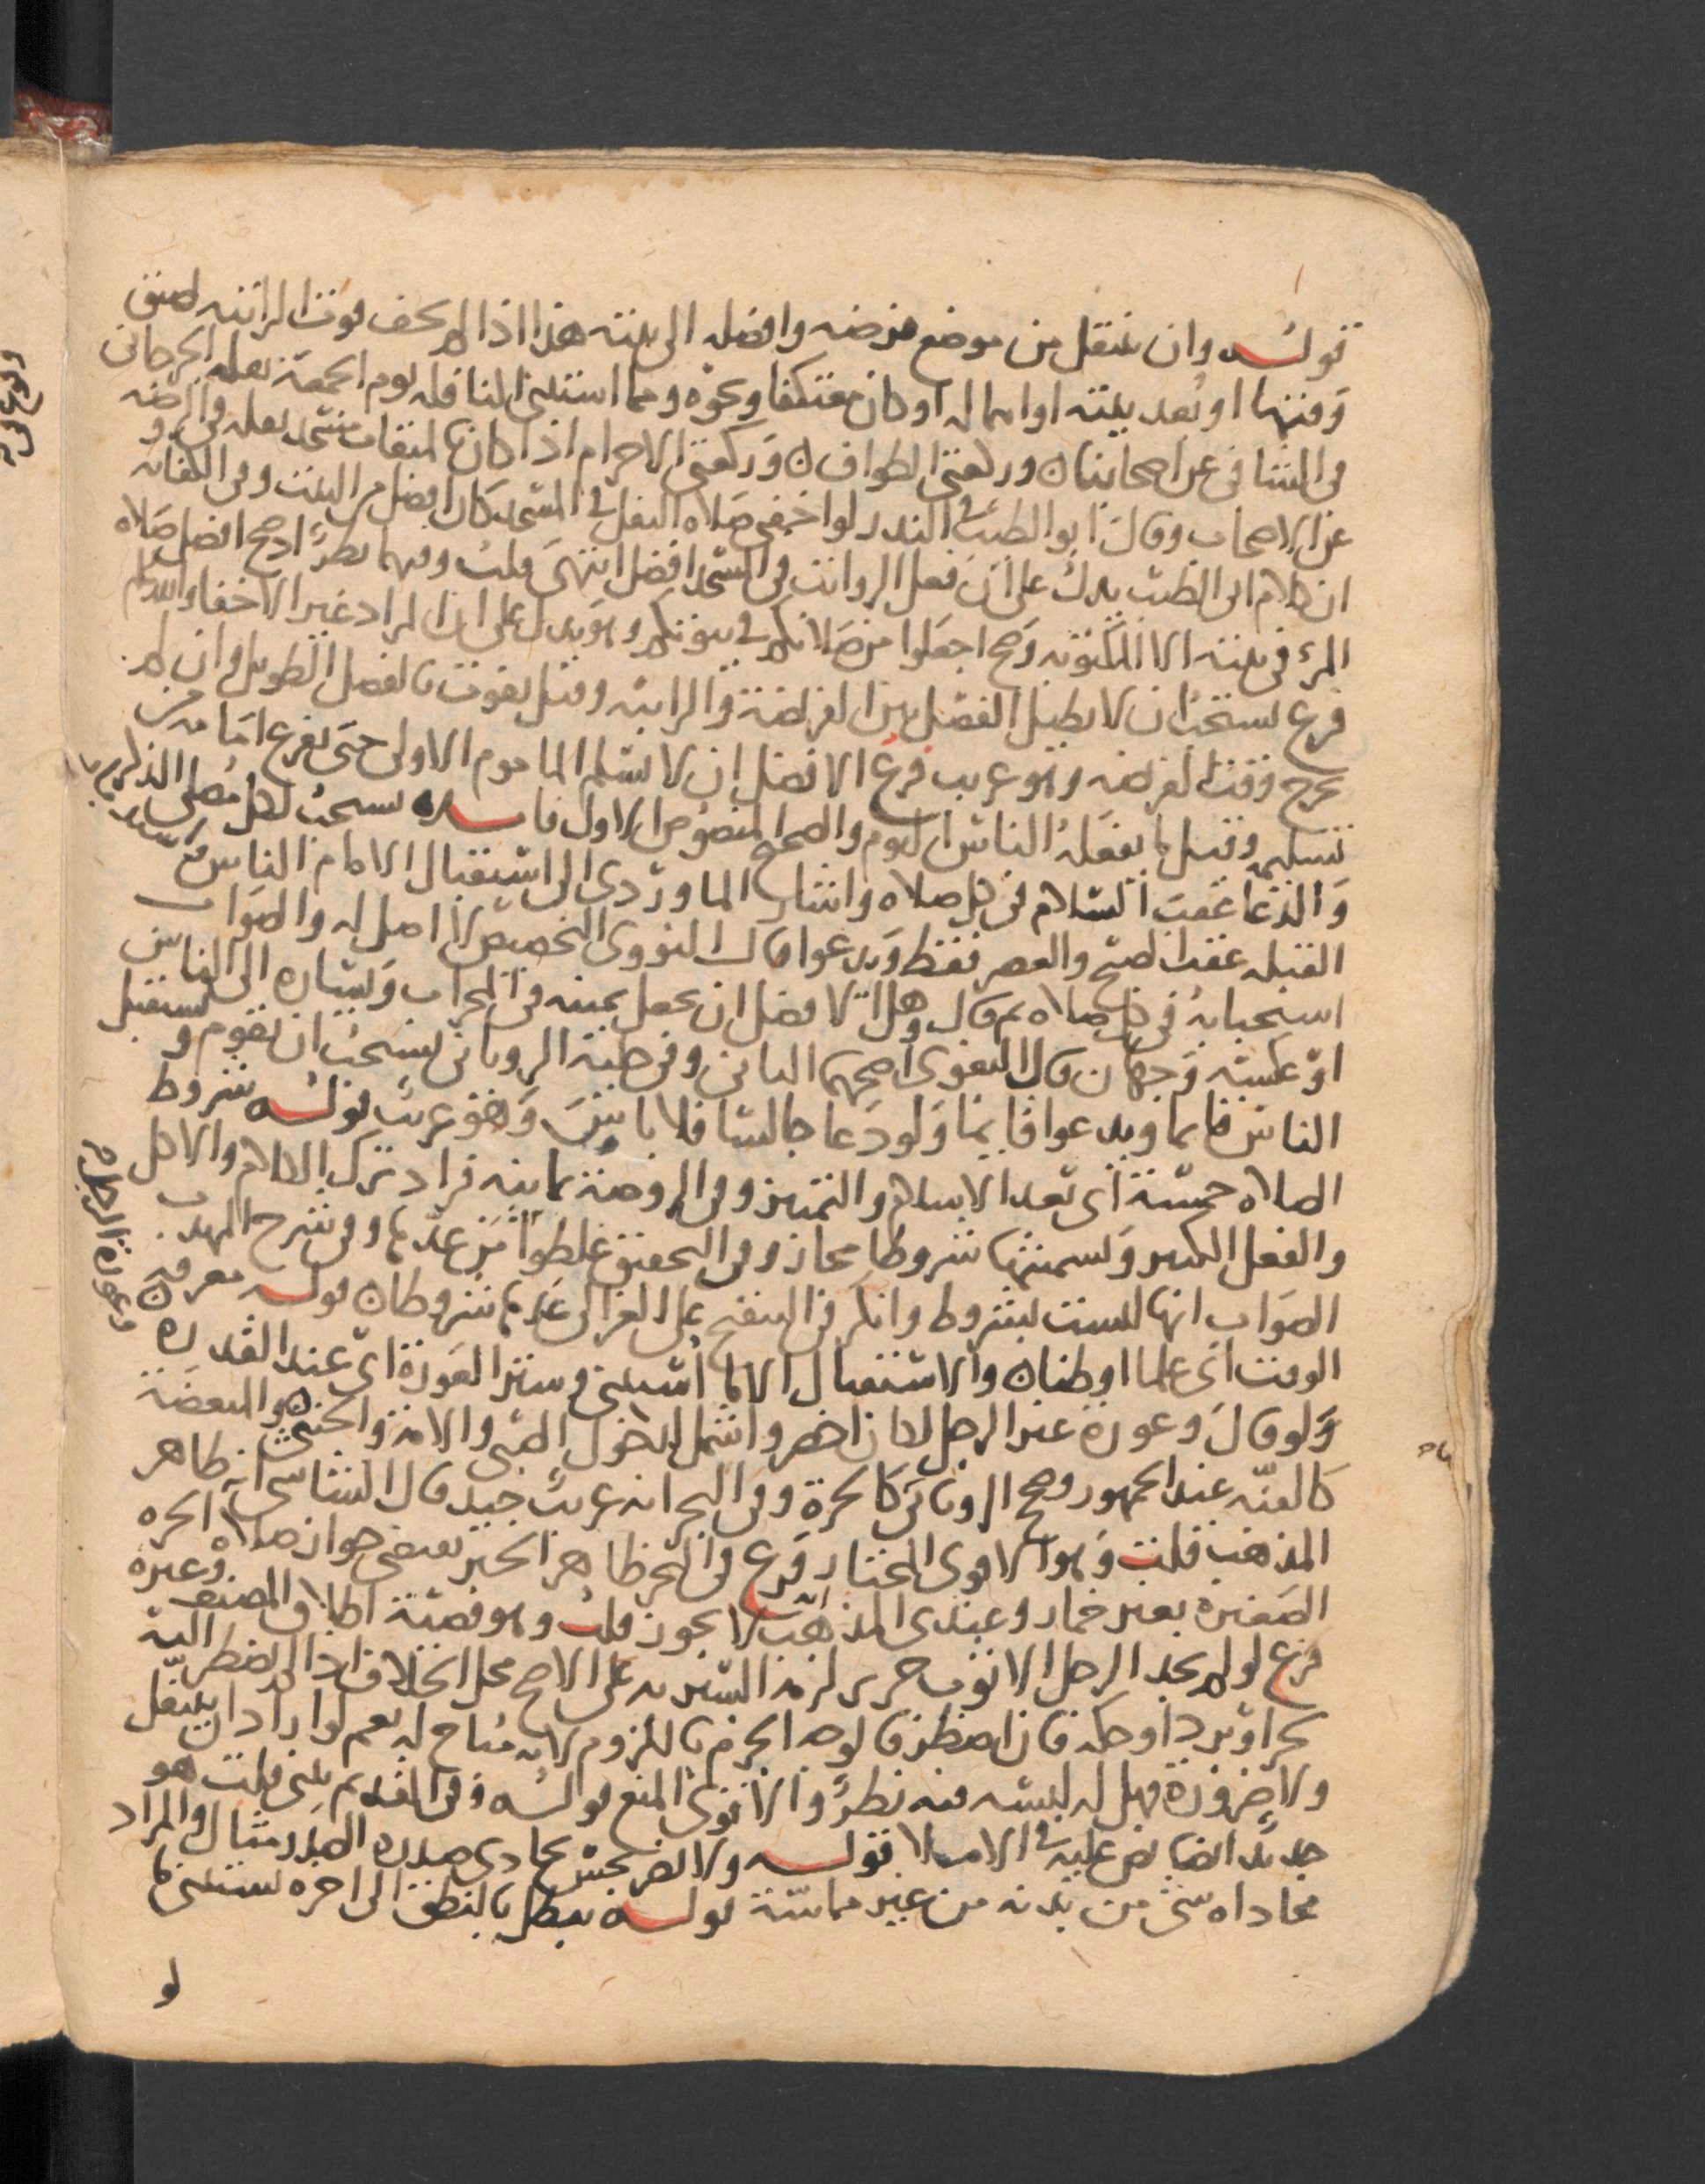 قوله وان ينتقل من موضع فرضه وافضله الى بيته هذا اذا لم يخف فوت الراتبه لضيق
وقتها او بعد بيته او اهماله او كان معتكفا ونحوه ومما استثنى النافله يوم الجمعة نقله الجرجانى
فى الشافى عن اصحابنا وركعتى الطواف وركعتى الاحرام اذا كان بالميقات مسجد نقله فى الروضه
عن الاصحاب وقال ابو الطيب فى النذر لو اخفى صلاه النفل فى المسجد كان افضل من البيت وفى الكفايه
ان كلام ابى الطيب يدل على ان فعل الرواتب فى المسجد افضل انتهى قلت وفيهما نظر اذ صح افضل صلاه
المرء فى بيته الا المكتوبه وصح اجعلوا من صلاتكم فى بيوتكم وهو يدل على ان المراد غير الاخفاء
فرع يستحب ان لا يطيل الفصل بين الفريضة والراتبه وقيل يفوت بالفصل الطويل وان لم
يخرج وقت الفريضه وهو غريب فرع الافضل ان لا يسلم الماموم الاولى حتى يفرغ امامه من
تسليمه وقيل ما يفعله الناس اليوم والصحيح المنصوص الاول فايده يستحب لكل مصلى الذكر
والدعا عقب السلام فى كل صلاه واشار الماوردى الى استقبال الامام الناس
القبله عقب الصبح والعصر فقط ويدعوا قال النووى التخصيص لا اصل له والصواب
استحبابه فى كل صلاه ثم قال وهل الافضل ان يجعل يمينه فى المحراب ويساره الى الناس
او عكسه وجهان قال البغوى اصحهما الثانى وفى حلية الرويانى يستحب ان يقوم ويستقبل
الناس قايما ويدعوا قايما ولو دعا جالسا فلا باس وهو غريب قوله شروط
الصلاه خمسة اى بعد الاسلام والتمييز وفى الروضة ثمانيه فزاد ترك الكلام والاكل
والفعل الكثير وتسميتها شروطا مجاز وفى التحقيق غلطوا من عدها وفى شرح المهذب
الصواب انها ليست بشروط وانكر فى التنقيح على الغزالى عدها شروطا قوله معرفة
الوقت اى علما او ظنا والاستقبال الا ما استثنى وستر العورة اى عند القدره
ولو قال وعورة غير الرجل لكان اخصر واشمل لدخول الصبى والامة والخنثى والمبعضة
كالقنه عند الجمهور وصحح الرويانى كالحرة وفى البحر انه غريب جيد قال الشاشى انه ظاهر
المذهب قلت وهو الاقوى المختار فرع فى البحر ظاهر الخبر يقتضى جواز صلاه الحره
الصغيرة بغير خمار وعندى المذهب انه لا يجوز قلت وهو قضية اطلاق المصنف وغيره
فرع لو لم يجد الرجل الا ثوب حرير لزمه الستر به على الاصح محل الخلاف اذا لم يضطر اليه
لحر او برد او حكه فان اضطر فالوجه الجزم باللزوم لانه مباح له نعم لو اراد ان يتنفل
ولا ضرورة فهل له لبسه فيه نظر والاقوى المنع قوله وفى القديم يبنى قلت هو
جديد ايضا نص عليه فى الاملا قوله ولا يضر نجس يحاذى صدره الصدر مثال والمراد
محاذاه شى من بدنه من غير مماسة قوله تبطل بالنطق الى اخره يستثنى ما
لو
وعورة الرجل